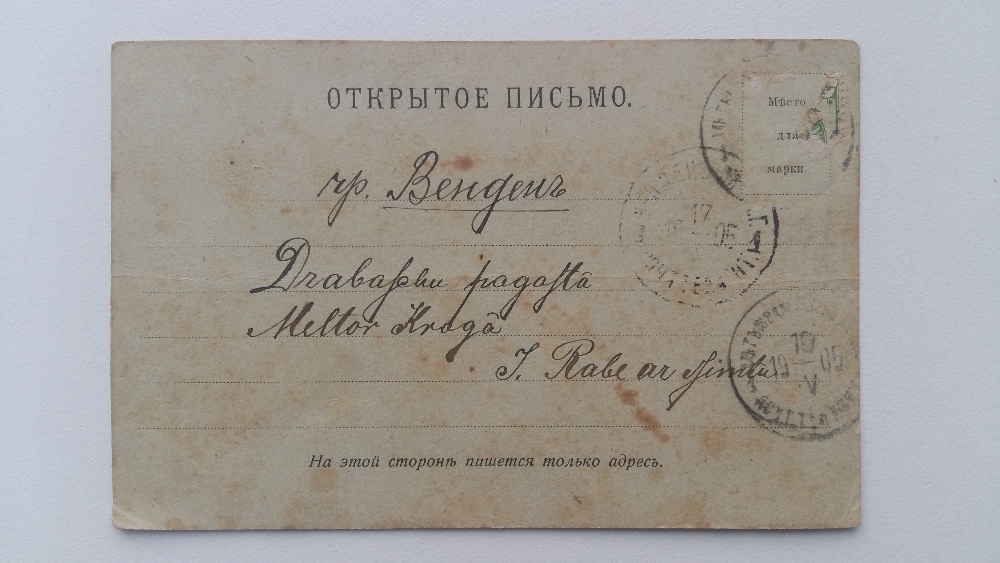 ОТКРЫТОЕ ПИСЬМО.
Мѣсто
для
марки.
гр. Венденъ
17
05
Drabaſchu pagaſtâ
Meltor Krogâ
J. Rabe ar ſſimtu
10
19 05
V
На этой сторонѣ пишется только адресъ.